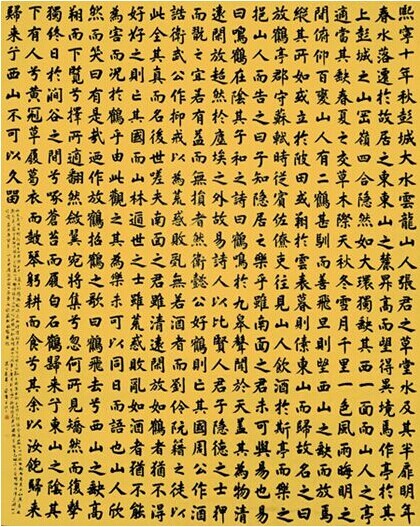 熙寧十年秋彭城大水雲龍山人張君之草堂水及其半扉明年
春水落遷於故居之東東山之麓昇高而望得異境焉作亭於其
上彭城之山岡嶺四合隱然如大環獨缺其西一面而山人之亭
適當其缺春夏之交草木際天秋冬雪月千里一色風雨晦明之
間俯仰百變山人有二鶴甚馴而善飛旦則望西山之缺而放焉
縱其所如或立於陂田或翔於雲表暮則傃東山而歸故名之曰
放鶴亭郡守蘇軾時從賓佐僚吏往見山人飲酒於斯亭而樂之
挹山人而告之曰子知隱居之樂乎雖南面之君未可與易也易
曰鳴鶴在陰其子和之詩曰鶴鳴於九皋聲聞於天蓋其為物清
遠閑放超然於塵埃之外故易詩人以比賢人君子隱德之士狎
而翫之宜若有益而無損者然衛懿公好鶴則亡其國周公作酒
誥衛武公作抑戒以為荒惑敗亂無若酒者而劉伶阮籍之徒以
此全其真而名後世嗟夫南面之君雖清遠閑放如鶴者猶不得
好好之則亡其國而山林遁世之士雖荒惑敗亂如酒者猶不能
為害而況於鶴乎由此觀之其為樂未可以同日而語也山人欣
然而笑曰有是哉迺作放鶴招鶴之歌曰鶴飛去兮西山之缺高
翔而下覽兮擇所適翻然斂翼宛將集兮忽何所見矯然而復擊
獨終日於澗谷之間兮啄蒼苔而履白石鶴歸來兮東山之陰其
下有人兮黃冠草屨葛衣而鼓琴躬耕而食兮其余以汝飽歸來
歸來兮西山不可以久留